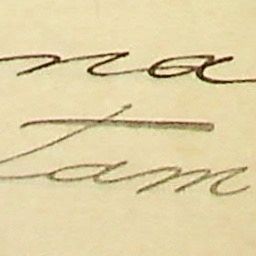 na
tam